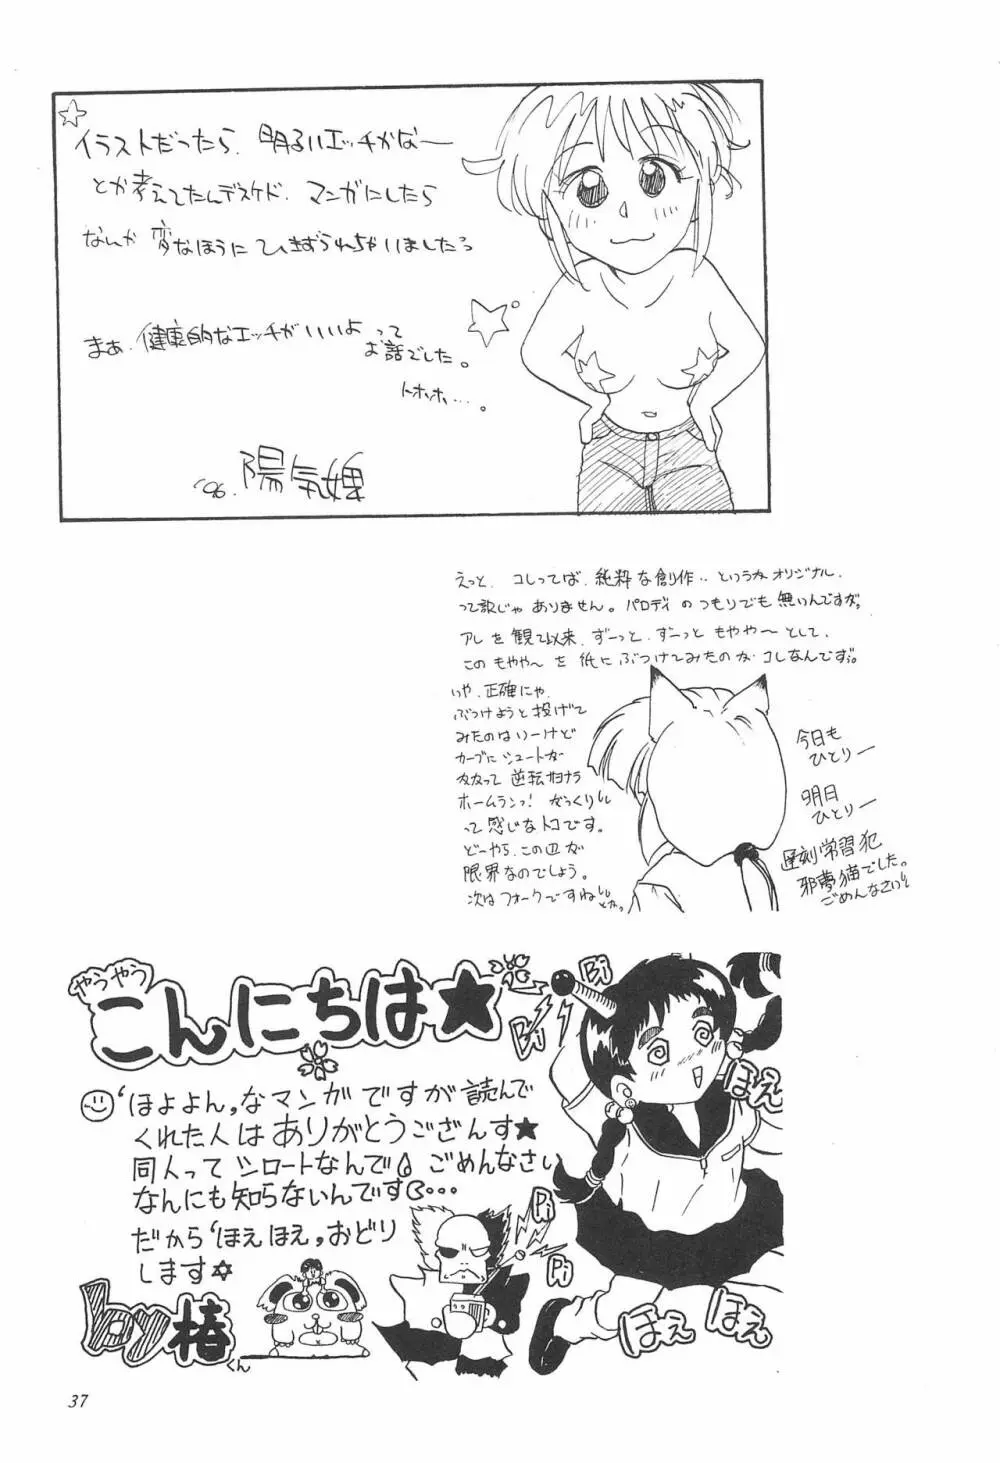 イラストだったら、明るいエッチかなー
とか考えてたんデスケド、マンガにしたら
なんか変なほうにひきずられちゃいましたっ
まあ、健康的なエッチがいいよって
お話でした。
トホホ…。
'96. 陽気婢
えっと、コレってば、純粋な創作‥というかオリジナル、
って訳じゃありません。パロディのつもりでも無いんですが。
アレを観て以来、ずーっと、ずーっともやや〜として、
このもやや〜を紙にぶつけてみたのがコレなんですぅ。
いや、正確にゃ、
ぶつけようと投げて
みたのはいーけど
カーブにシュートが
って逆転サヨナラ
ホームランっ! がっくりし
って感じなトコです。
どーやら、この辺が
限界なのでしょう。
次はフォークですね
とかっ
今日も
ひとりー
明日
ひとりー
遅刻常習犯
邪夢猫でした。
ごめんなさい!
やうやう
こんにちは★
'ほよよん,なマンガですが読んで
くれた人はありがとうござんす★
同人ってシロートなんで ごめんなさい
なんにも知らないんです…
だから'ほえほえ,おどり
します☆
by 椿くん
Bi
Bi
Pi
Pi
Pi
ほえ
ほえ
ほえ
37